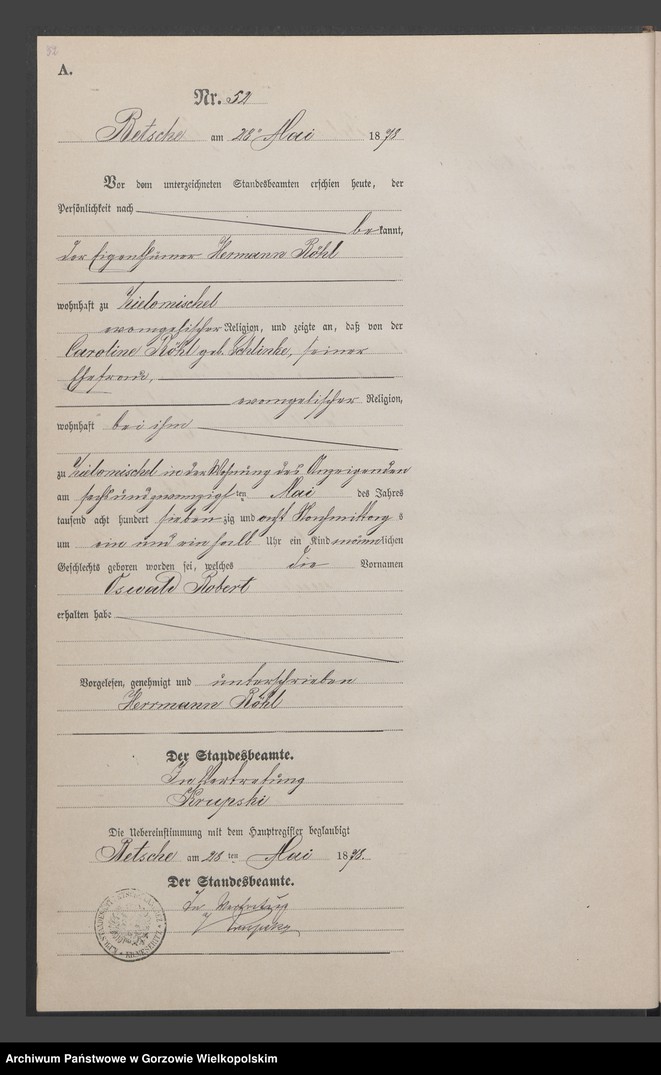 52
A.
Nr. 52
Betsche am 28ᵗᵉⁿ Mai 1878
Vor dem unterzeichneten Standesbeamten erschien heute, der
Persönlichkeit nach
bekannt,
der Eigenthümer Hermann Röhl
wohnhaft zu Zielomischel
evangelischer Religion, und zeigte an, daß von der
Caroline Röhl geb. Schlinke, seiner
Ehefrau,
evangelischer Religion,
wohnhaft bei ihm
zu Zielomischel in der Wohnung des Anzeigenden
am sechsundzwanzigsten Mai des Jahres
tausend acht hundert siebenzig und acht Nachmittags
um ein und ein halb Uhr ein Kind männlichen
Geschlechts geboren worden sei, welches die Vornamen
Oswald Robert
erhalten habe
Vorgelesen, genehmigt und unterschrieben
Herrmann Röhl
Der Standesbeamte.
In Vertretung
Krupski
Die Uebereinstimmung mit dem Hauptregister beglaubigt
Betsche am 28ten Mai 1878.
Der Standesbeamte.
In Vertretung
Krupski
Archiwum Państwowe w Gorzowie Wielkopolskim